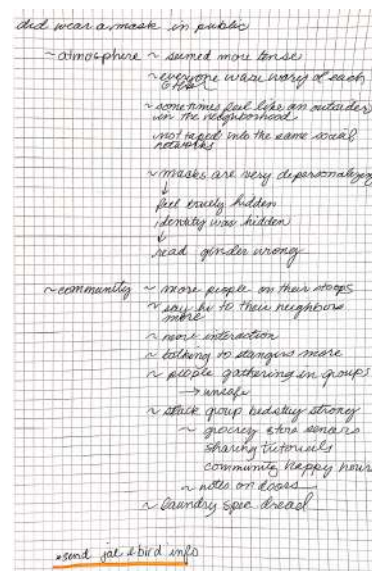 did wear a mask in public
~atmosphere ~ seemed more tense
~ everyone was wary of each
other
~ sometimes feel like an outsider
in the neighborhood
not taped into the same social
networks
~ masks are very depersonalizing
↓
feel hidden
identity was hidden
↓
read gender wrong
~community ~ more people on their stoops
~ say hi to their neighbors
more
~ more interaction
~ talking to stangers more
~ people gathering in groups
→ unsafe
~ slack group bedstuy strong
~ grocery store
sharing tutorials
community happy hour
~ notes on doors
~ laundry spec dread
*send bird info